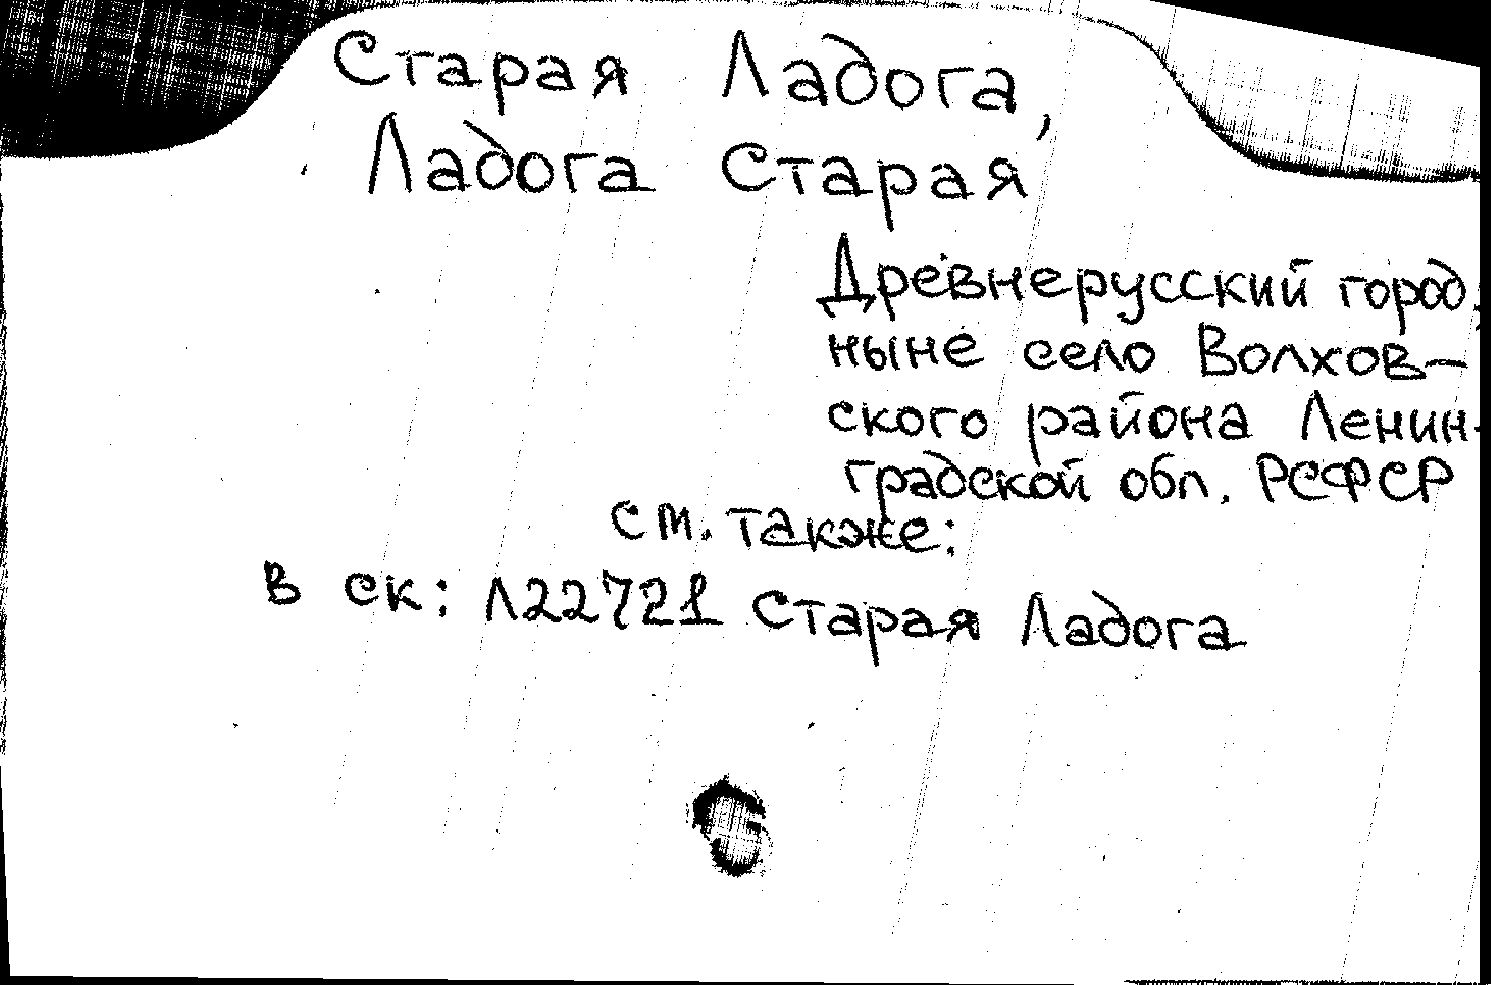 Старая Ладога,
Ладога Старая
Древнерусский город,
ныне село Волхов-
ского района Ленин-
градской обл. РСФСР
см. также:
в ск: Л22721 Старая Ладога